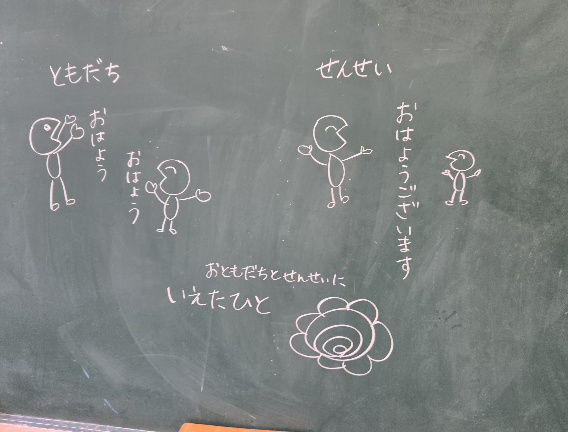 ともだち
おはよう
おはよう
せんせい
おはようございます
おともだちとせんせいに
いえたひと